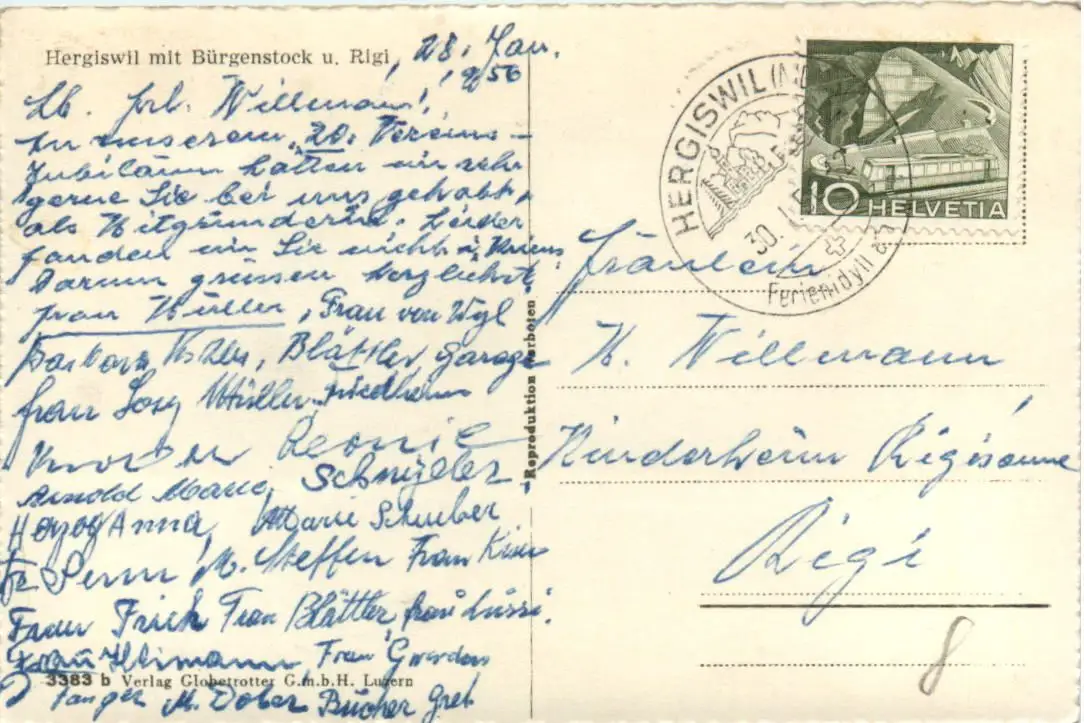 Hergiswil mit Bürgenstock u. Rigi
, 28. Jan.
1956
Lb. Frl. Willmann!
An unserem 20. Vereins-
Jubiläum hätten wir sehr
gerne Sie bei uns gehabt,
als Mitgründerin. Leider
fanden wir Sie nicht i. Kriens
Darum grüssen herzlichst
Frau Müller, Frau von Wyl
Barbara Blättler Garage
Frau Josy Müller Friedheim
Leonie
Arnold Marie, Schnyder
Herzog Anna, Marie Schuber
M. Steffen Frau
Frau Frick Frau Blättler, Frau Lussi.
Frau Frau
M. Dober Bucher Gret
3383 b Verlag Globetrotter G.m.b.H. Luzern
Reproduktion verboten
HERGISWIL (NDW)
30. I.
Ferienidyll am
10 HELVETIA
Fräulein
K. Willmann
Kinderheim Rigisonne
Rigi
8